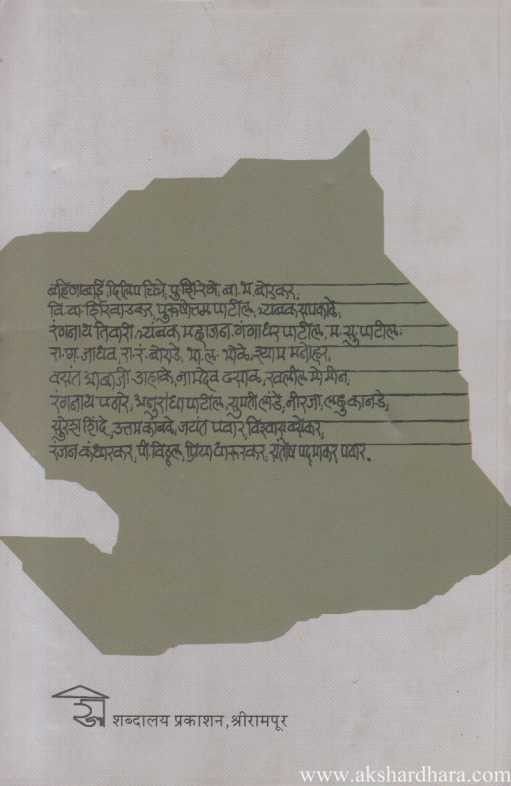 बहिणाबाई, दिलीप चित्रे, पु. शि. रेगे, बा. भ. बोरकर,
वि. वा. शिरवाडकर, पुरुषोत्तम पाटील, त्र्यंबक सपकाळे,
रंगनाथ तिवारी, त्र्यंबक महाजन, गंगाधर पाटील, म. सु. पाटील,
रा. ग. जाधव, रा. रं. बोराडे, भा. ल. भोळे, श्याम मनोहर,
वसंत आबाजी डहाके, नामदेव ढसाळ, खलील मोमीन,
रंगनाथ पठारे, अनुराधा पाटील, सुमती लांडे, नीरजा, लहू कानडे,
सुरेश शिंदे, उत्तम कांबळे, जयंत पवार, विश्वास वसेकर,
रंजन कंधारकर, पी. विठ्ठल, प्रिया धारूरकर, संतोष पद्माकर पवार.
शब्दालय प्रकाशन, श्रीरामपूर
www.akshardhara.com